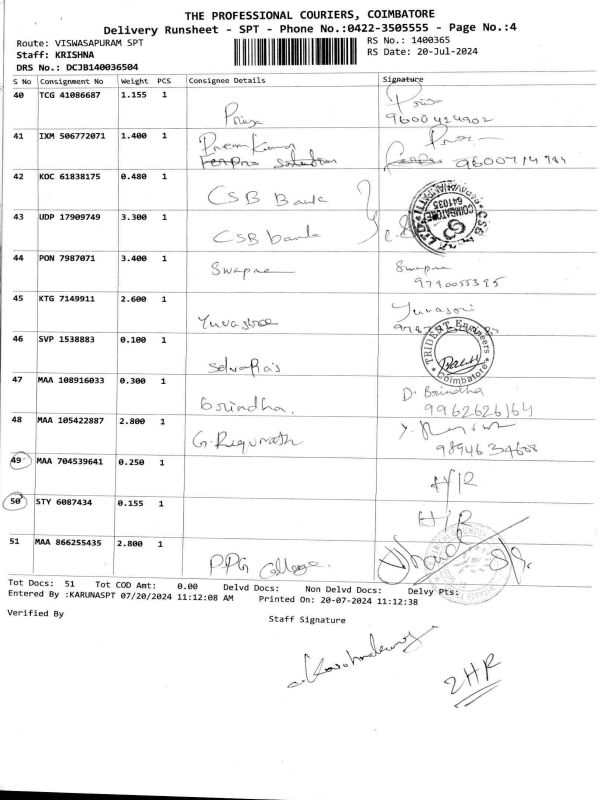 THE PROFESSIONAL COURIERS, COIMBATORE
Delivery Runsheet - SPT - Phone No.:0422-3505555 - Page No.:4
Route: VISWASAPURAM SPT RS No.: 1400365
Staff: KRISHNA RS Date: 20-Jul-2024
DRS No.: DCJB140036504
S No Consignment No Weight PCS Consignee Details Signature
40 TCG 41086687 1.155 1 Priya Priya
9600424902
41 IXM 506772071 1.400 1 Prem Kumar
42 KOC 61838175 0.480 1 CSB Bank
43 UDP 17909749 3.300 1 CSB bank
COIMBATORE
641035
44 PON 7987071 3.400 1 Swapna Swapna
9790055395
45 KTG 7149911 2.600 1 Yuvasree Yuvasri
46 SVP 1538883 0.100 1 Selvaraj
TRIDENT Engineers
Coimbatore
47 MAA 108916033 0.300 1 brindha. D. Brindha
9962626164
48 MAA 105422887 2.800 1 G. Regunath
9894634608
49 MAA 704539641 0.250 1 H/R
50 STY 6087434 0.155 1 H/R
51 MAA 866255435 2.800 1 PPG College.
Tot Docs: 51 Tot COD Amt: 0.00 Delvd Docs: Non Delvd Docs: Delvy Pts:
Entered By :KARUNASPT 07/20/2024 11:12:08 AM Printed On: 20-07-2024 11:12:38
Verified By Staff Signature
2HR